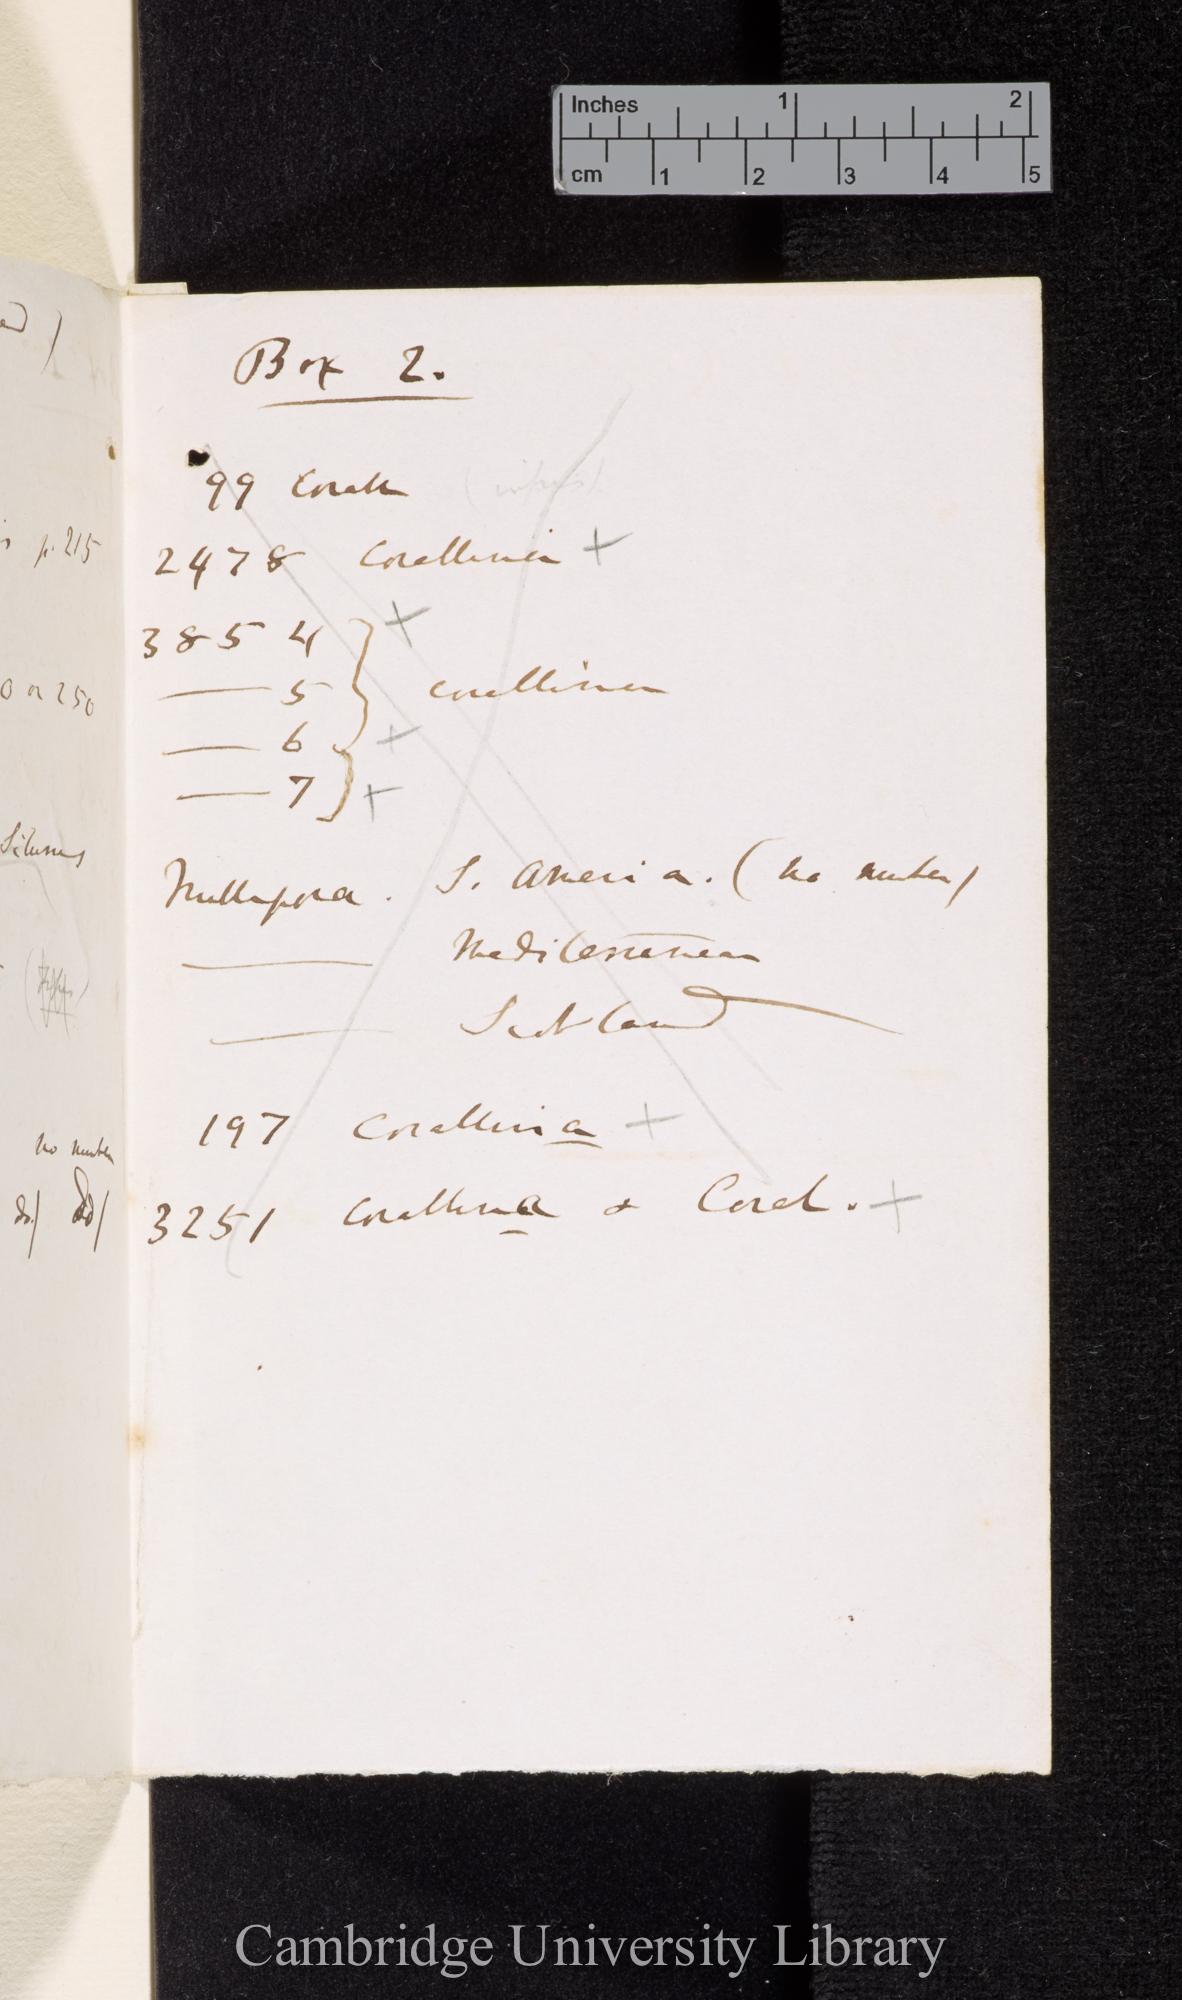 Inches 1 2
cm 1 2 3 4 5
Box 2.
99 Corall
2478 Corallina +
3854 +
— 5 Corallina
— 6 +
— 7 +
Nullipora . S. America. (no number)
— Mediterranean
— Scotland
197 Corallina +
3251 Corallina & Coral. +
p. 215
0 or 250
Silurus
no number
do) do)
Cambridge University Library